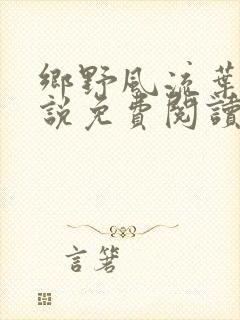 鄉野風流葉
說免費閱讀
言箸